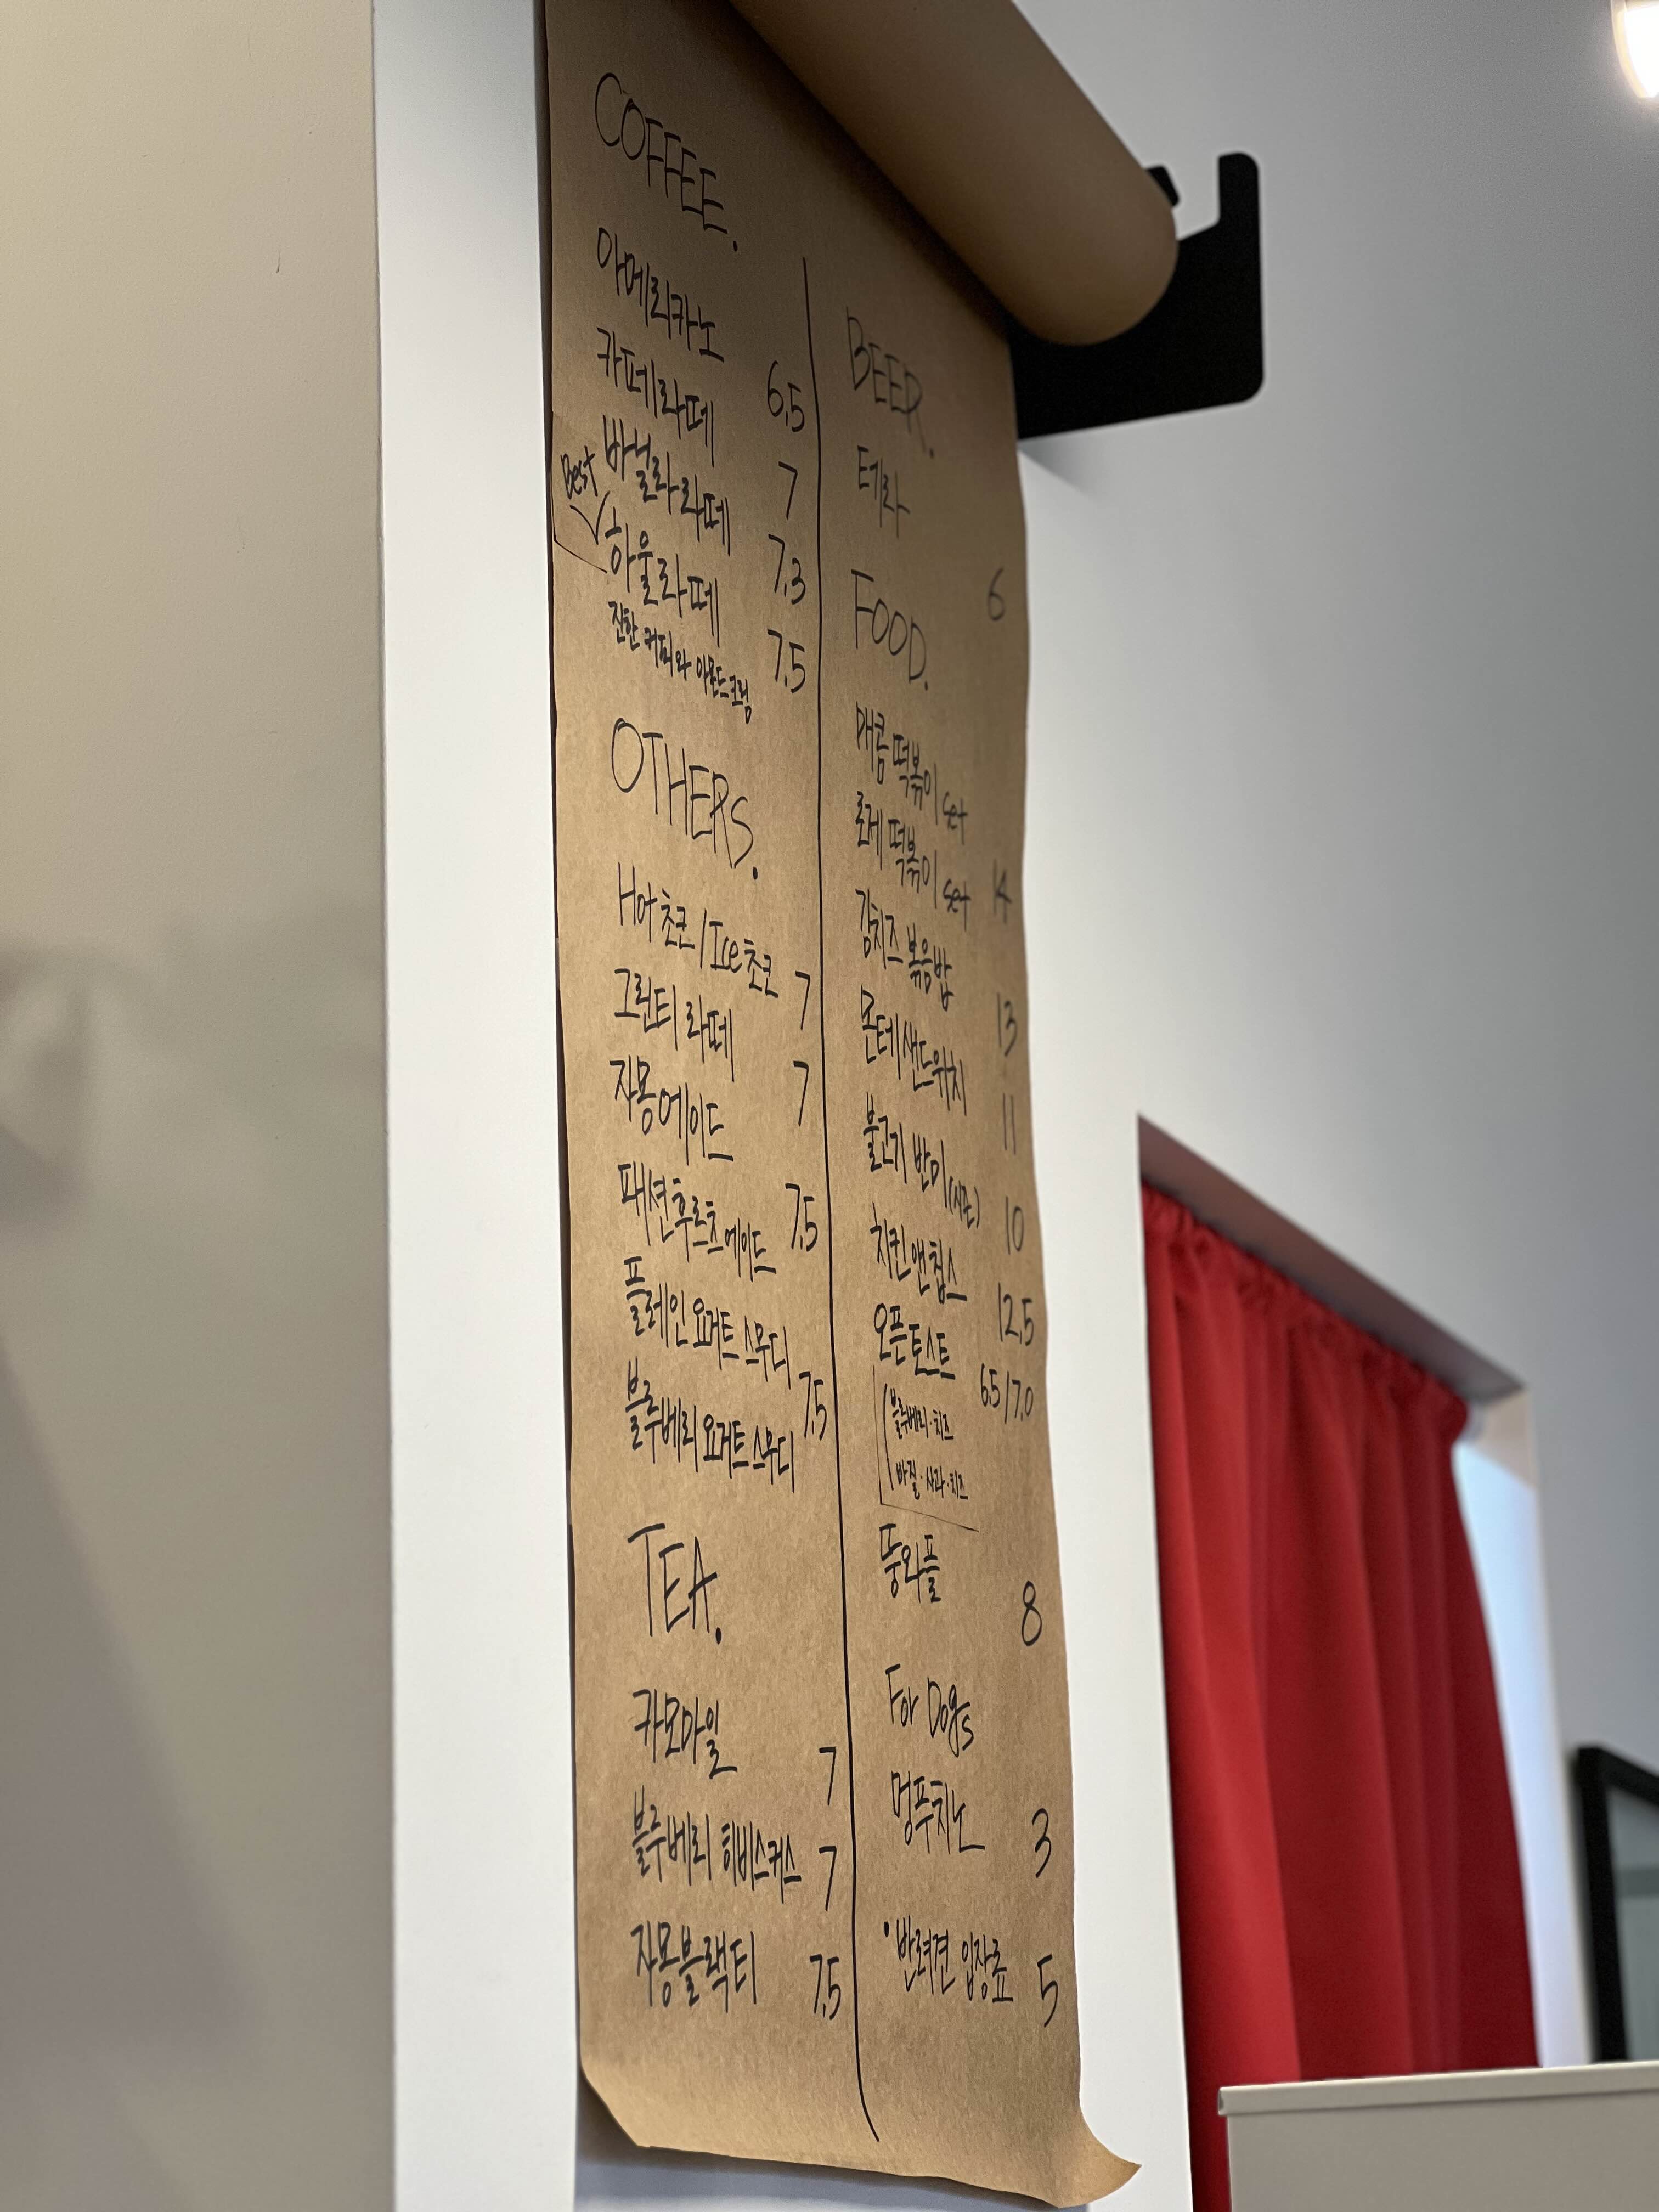 COFFEE.
아메리카노 6.5
카페라떼 7
바닐라라떼 7.3
Best
하울라떼 7.5
진한 커피와 아몬드크림
OTHERS.
Hot초코/Ice초코 7
그린티 라떼 7
자몽에이드 7.5
패션후르츠에이드
플레인 요거트 스무디 7.5
블루베리 요거트 스무디
TEA.
카모마일 7
블루베리 히비스커스 7
자몽블랙티 7.5
BEER.
테라 6
FOOD.
매콤 떡볶이 set
로제 떡볶이 set 14
김치즈 볶음밥 13
몬테샌드위치 11
불고기 반미(시즌) 10
치킨앤칩스 12.5
오픈토스트 6.5/7.0
블루베리·치즈
바질·사과·치즈
뚱와플 8
For Dogs
멍푸치노 3
•반려견 입장료 5